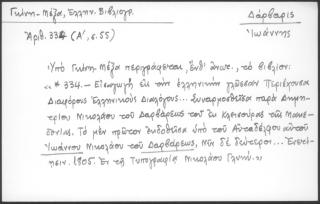 Γκίνη - Μέξα, Ελλην. Βιβλιογρ.
Δάρβαρις
Ἀριθ. 334 (Α', σ. 55)
Ἰωάννης
Ὑπὸ Γκίνη - Μέξα περιγράφεται, ἔνθ' ἀνωτ., τὸ βιβλίον:
«* 334. — Εἰσαγωγὴ εἰς τὴν ἑλληνικὴν γλῶσσαν Περιέχουσα
Διαφόρους Ἑλληνικοὺς Διαλόγους... Συναρμοσθεῖσα παρὰ Δημη-
τρίου Νικολάου τοῦ Δαρβάρεως τοῦ ἐκ Κλεισούρας τῆς Μακε-
δονίας. Τὸ μὲν πρῶτον ἐκδοθεῖσα ὑπὸ τοῦ Αὐταδέλφου αὐτοῦ
Ἰωάννου Νικολάου τοῦ Δαρβάρεως, Νῦν δὲ δεύτερον... Ἐν Βενε-
1805. Ἐν τῇ Τυπογραφίᾳ Νικολάου Γλυκύ.»